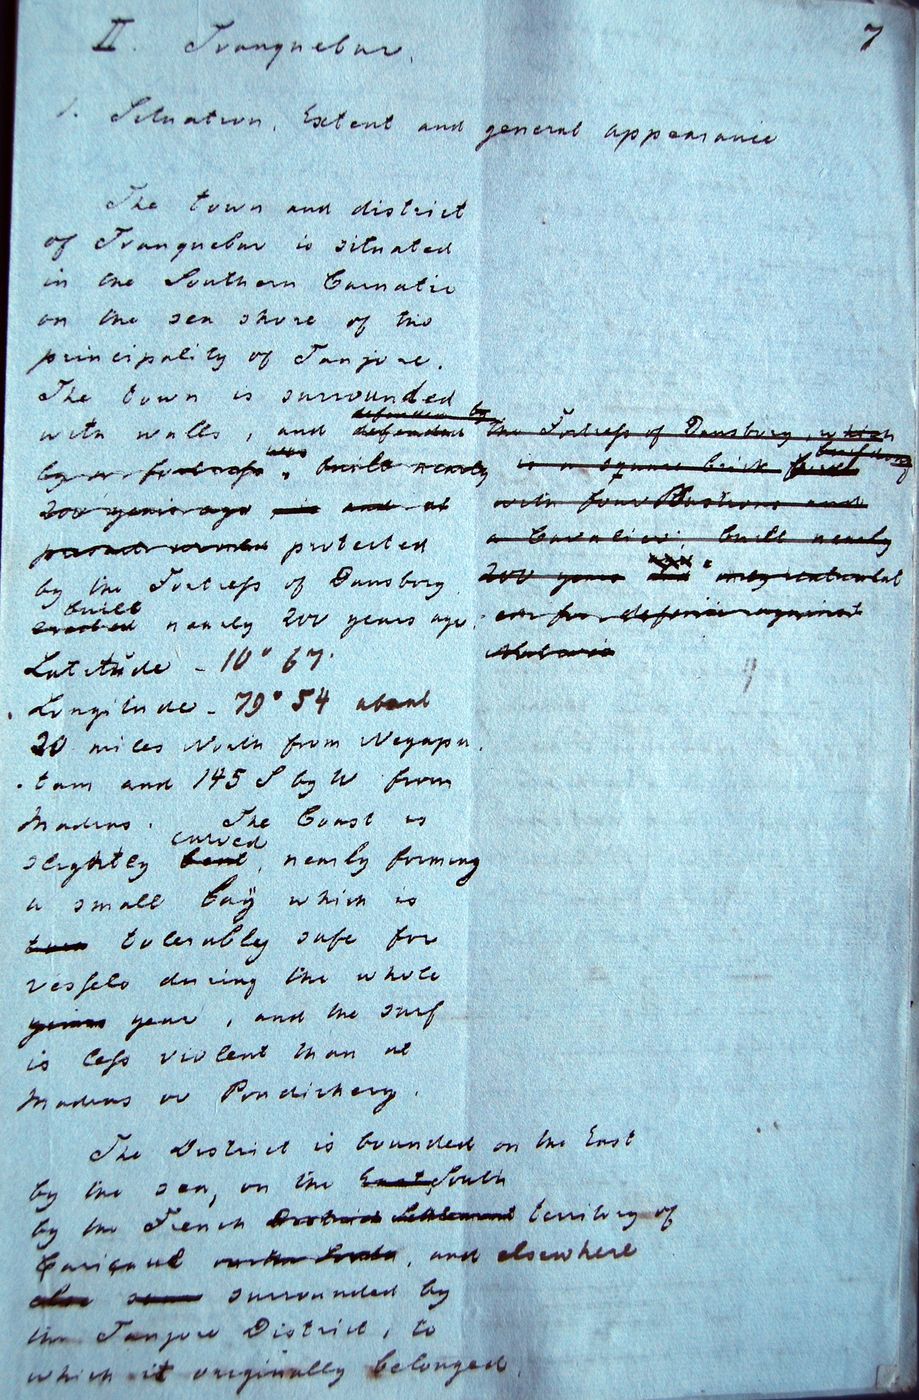 7
II. Tranquebar.
1. Situation, Extent and general appearance
The town and district
of Tranquebar is situated
in the Southern Carnatic
on the sea shore of the
principality of Tanjore.
The town is surrounded
defended by
with walls, and defended
by a fortress, built nearly
200 years ago and at
present protected
by the Fortress of Dansborg
built
erected nearly 200 years ago.
Latitude - 10° 67'
Longitude - 79° 54 about
20 miles North from Negapa-
tam and 145 S by W from
Madras. The Coast is
curved
slightly bent, nearly forming
a small Bay which is
tolerably safe for
vessels during the whole
year, and the surf
is less violent than at
Madras or Pondichery.
the Fortress of Dansborg, which
building
is a square brick
with four Bastions and
a Cavalier, built nearly
200 years
for defence against
The District is bounded on the East
by the sea, on the East, South
by the French District Settlement territory of
Carical, and elsewhere
surrounded by
the Tanjore District, to
which it originally belonged.